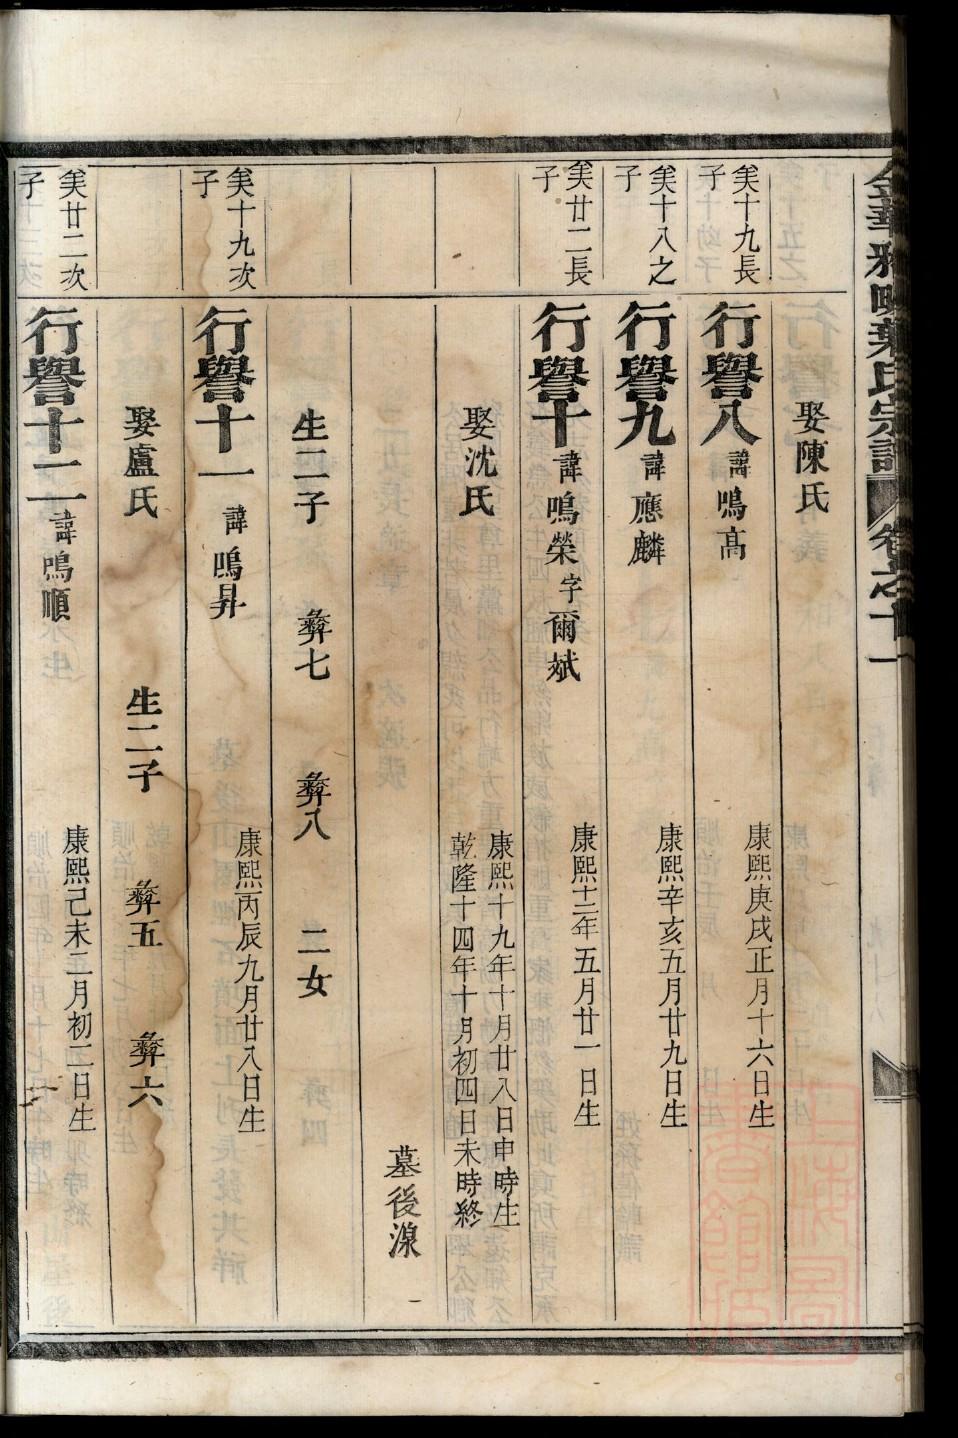 金華雅畈葉氏宗譜 卷之十一
娶陳氏
𢑥十九長子
行譽八 諱鳴高 康熙庚戌正月十六日生
𢑥十八之子
行譽九 諱應麟 康熙辛亥五月廿九日生
𢑥廿二長子
行譽十 諱鳴榮 字爾斌 康熙十二年五月廿一日生
娶沈氏 康熙十九年十月廿八日申時生
乾隆十四年十月初四日未時終
墓後湶
生二子 彝七 彝八 二女
𢑥十九次子
行譽十一 諱鳴昇 康熙丙辰九月廿八日生
娶盧氏 生二子 彝五 彝六
𢑥廿二次子
行譽十二 諱鳴順 康熙己未二月初二日生